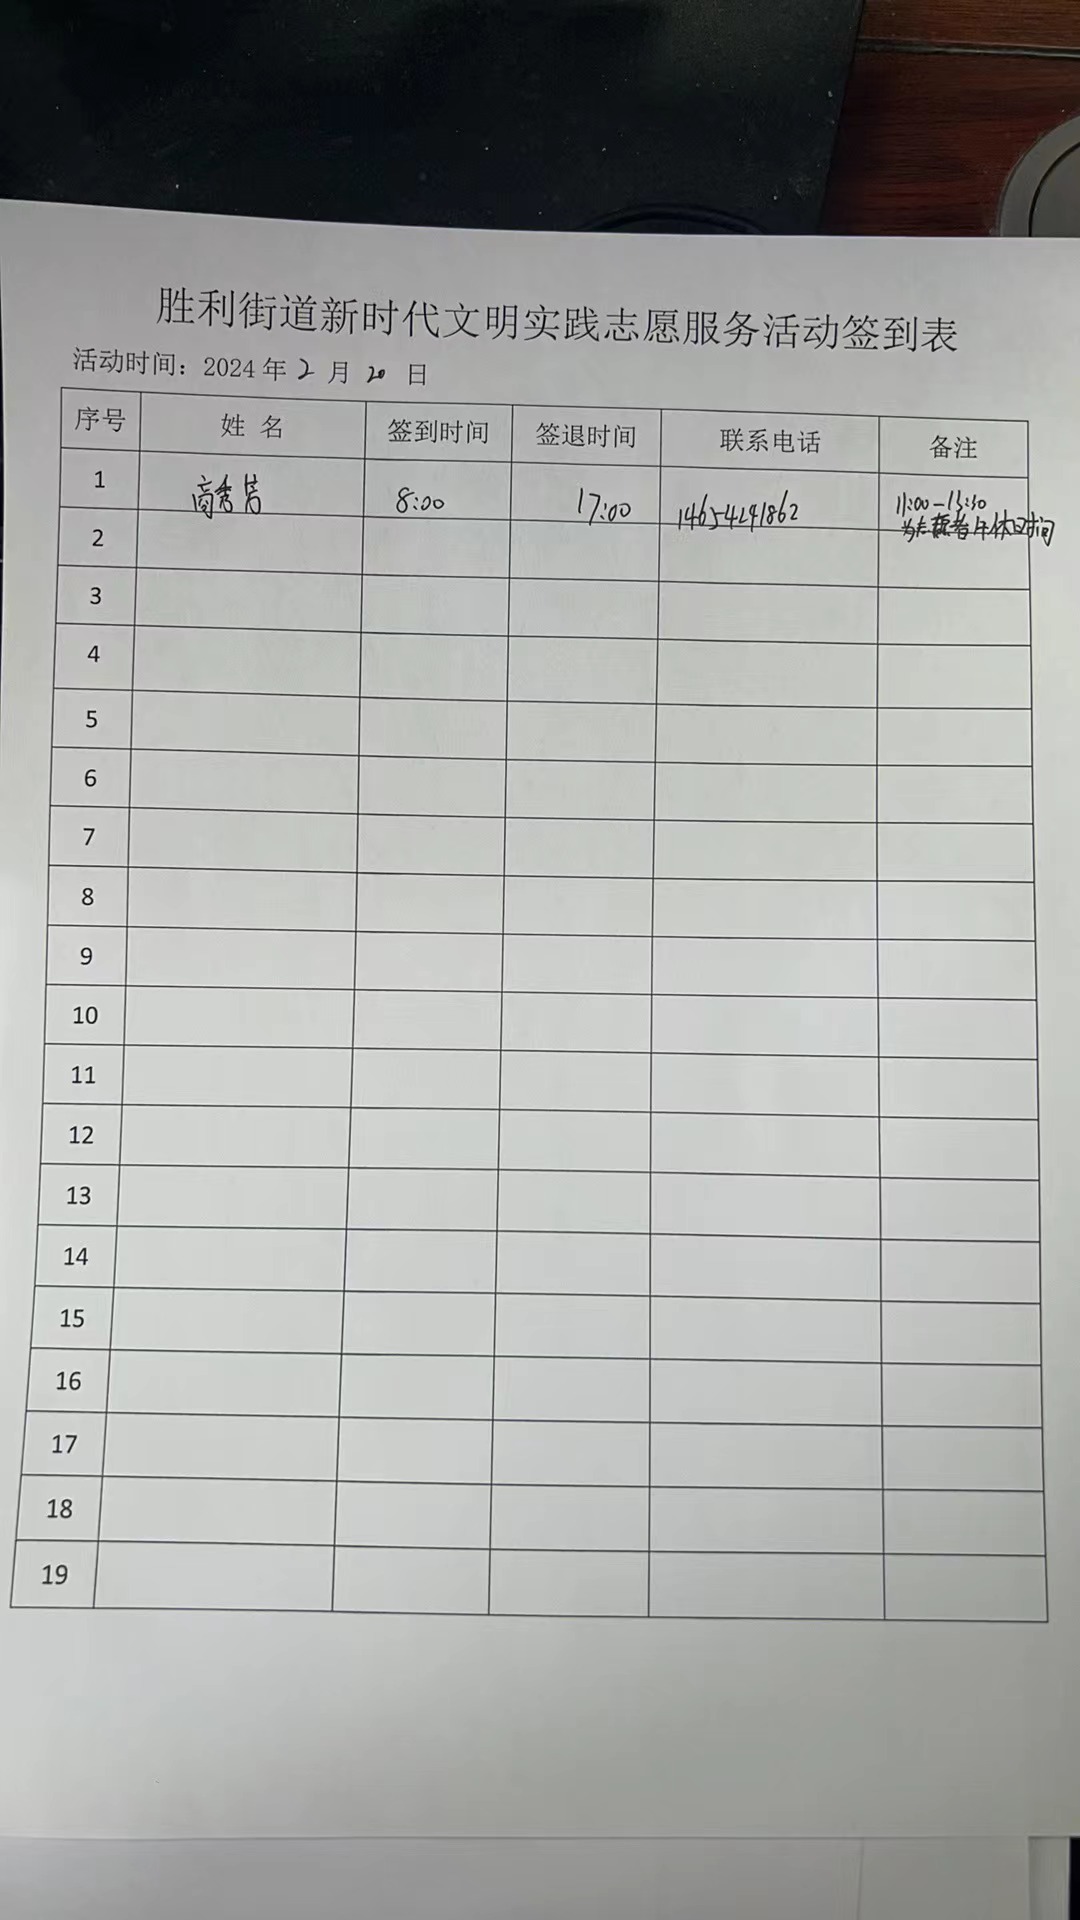 胜利街道新时代文明实践志愿服务活动签到表
活动时间：2024年2月20日
序号 姓名 签到时间 签退时间 联系电话 备注
1 高秀芳 8:00 17:00 14654241862 11:00-13:30
为志愿者午休时间
2
3
4
5
6
7
8
9
10
11
12
13
14
15
16
17
18
19